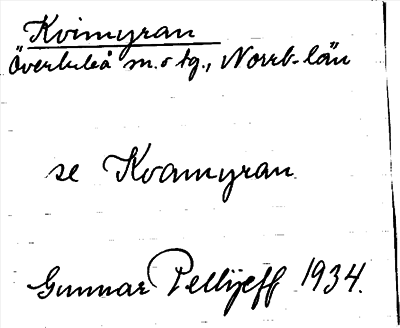 Kvimyran
Överluleå m. o tg., Norrb-län
se Kvamyran
Gunnar Pellijeff 1934.